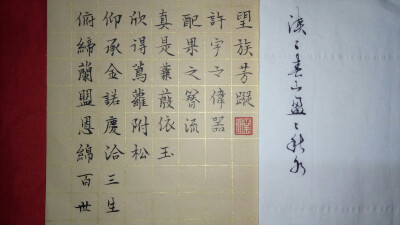 淡々春山盈々秋水
望族芳蹤
許字之偉器
配果之流
真是蒹葭依玉
欣得蔦蘿附松
仰承金諾慶洽三生
俯締蘭盟恩綿百世